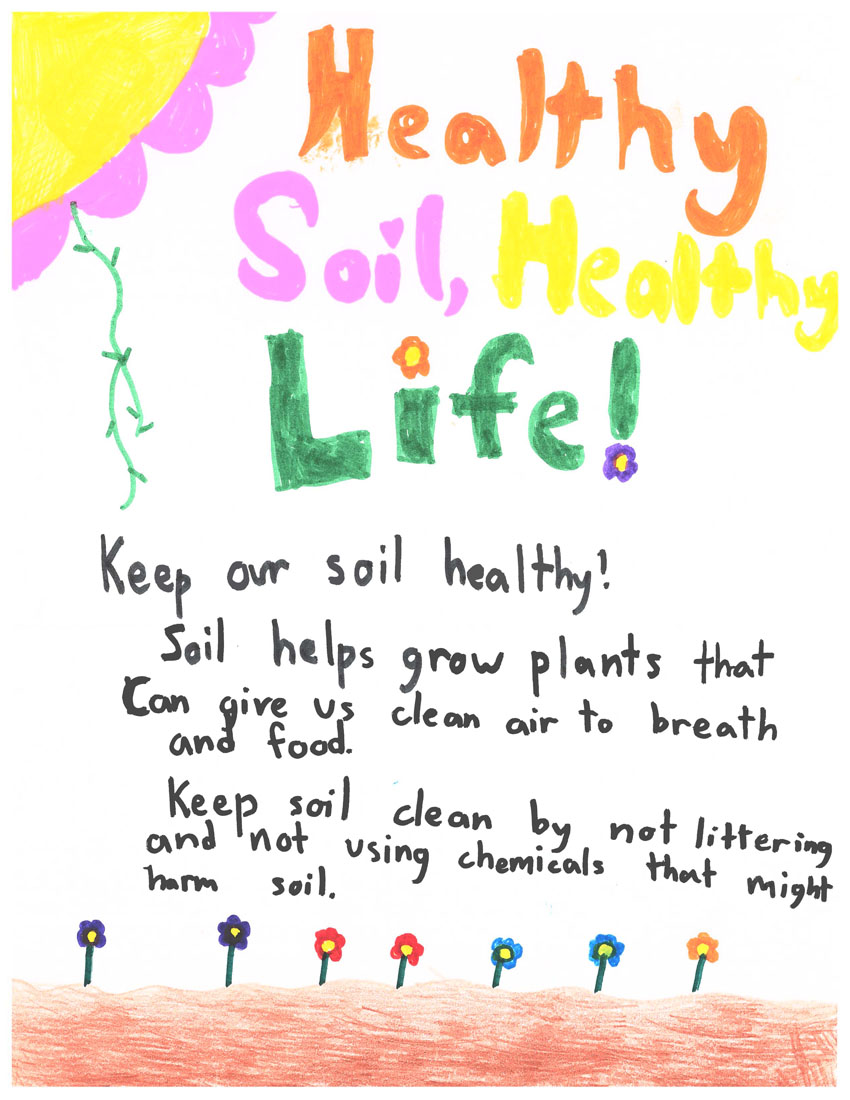 Healthy
Soil, Healthy
Life!
Keep our soil healthy!
Soil helps grow plants that
Can give us clean air to breath
and food.
Keep soil clean by not littering
and not using chemicals that might
harm soil.